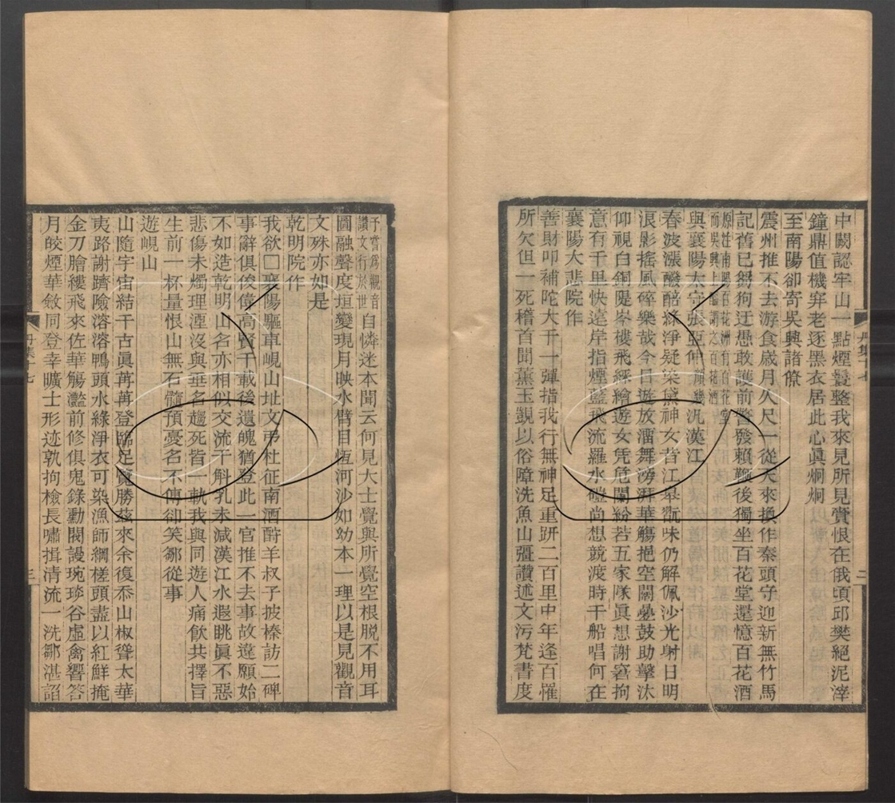 中閟認牢山一點煙鬟整我來見所見賞恨在俄頃邱樊絕泥滓
鐘鼎值機穽老逐黑衣居此心眞烱烱
至南陽卻寄吳興諸僚
震州推不去游食歲月久尺一從天來換作秦頭守迎新無竹馬
記舊已芻狗迂愚敢護前瞥發賴鞭後獨坐百花堂還憶百花酒
與襄陽太守張亞仲汎漢江
春波漲醱醅綠淨疑染黛神女昔江皋翫味仍解佩沙光射日明
浪影搖風碎樂哉今日遊放溜舞湧湃華觴挹空闊疊鼓助擊汰
仰視白銅隄岑樓飛綵繪遊女凭危闌紛若五家隊眞想謝窘拘
意有千里快遠岸指煙藍飛流羅水磑尚想競渡時千船唱何在
襄陽大悲院作
善財叩補陀大千一彈指我行無神足重趼二百里中年逢百罹
所欠但一死稽首聞薰玉觀以俗障洗魚山彊讚述文污梵書度
予嘗爲觀音
讚文行於世
自憐迷本聞云何見大士覺與所覺空根脱不用耳
圓融聲度垣變現月映水臂目恆河沙如幼本一理以是見觀音
文殊亦如是
乾明院作
我欲□襄陽驅車峴山址文弔杜征南酒酹羊叔子披榛訪二碑
事辭俱俊偉高賢千載後遺魄猶登此一官推不去事故違願始
不如造乾明山名亦相似交流千斛乳未減漢江水遐眺眞不惡
悲傷未燭理湮沒與垂名趣死皆一軌我與同遊人痛飲共擇旨
生前一杯量恨山無石髓預憂名不傳卻笑鄒從事
遊峴山
山隨宇宙結千古眞苒苒登臨足覽勝茲來余復忝山椒聳太華
夷路謝躋險溶溶鴨頭水綠淨衣可染漁師網槎頭盡以紅鮮掩
金刀膾縷飛來佐華觴灩前修俱鬼錄勳閥謾琬琰谷虛禽響答
月皎煙華斂同登幸曠士形迹孰拘檢長嘯揖清流一洗鄒湛諂